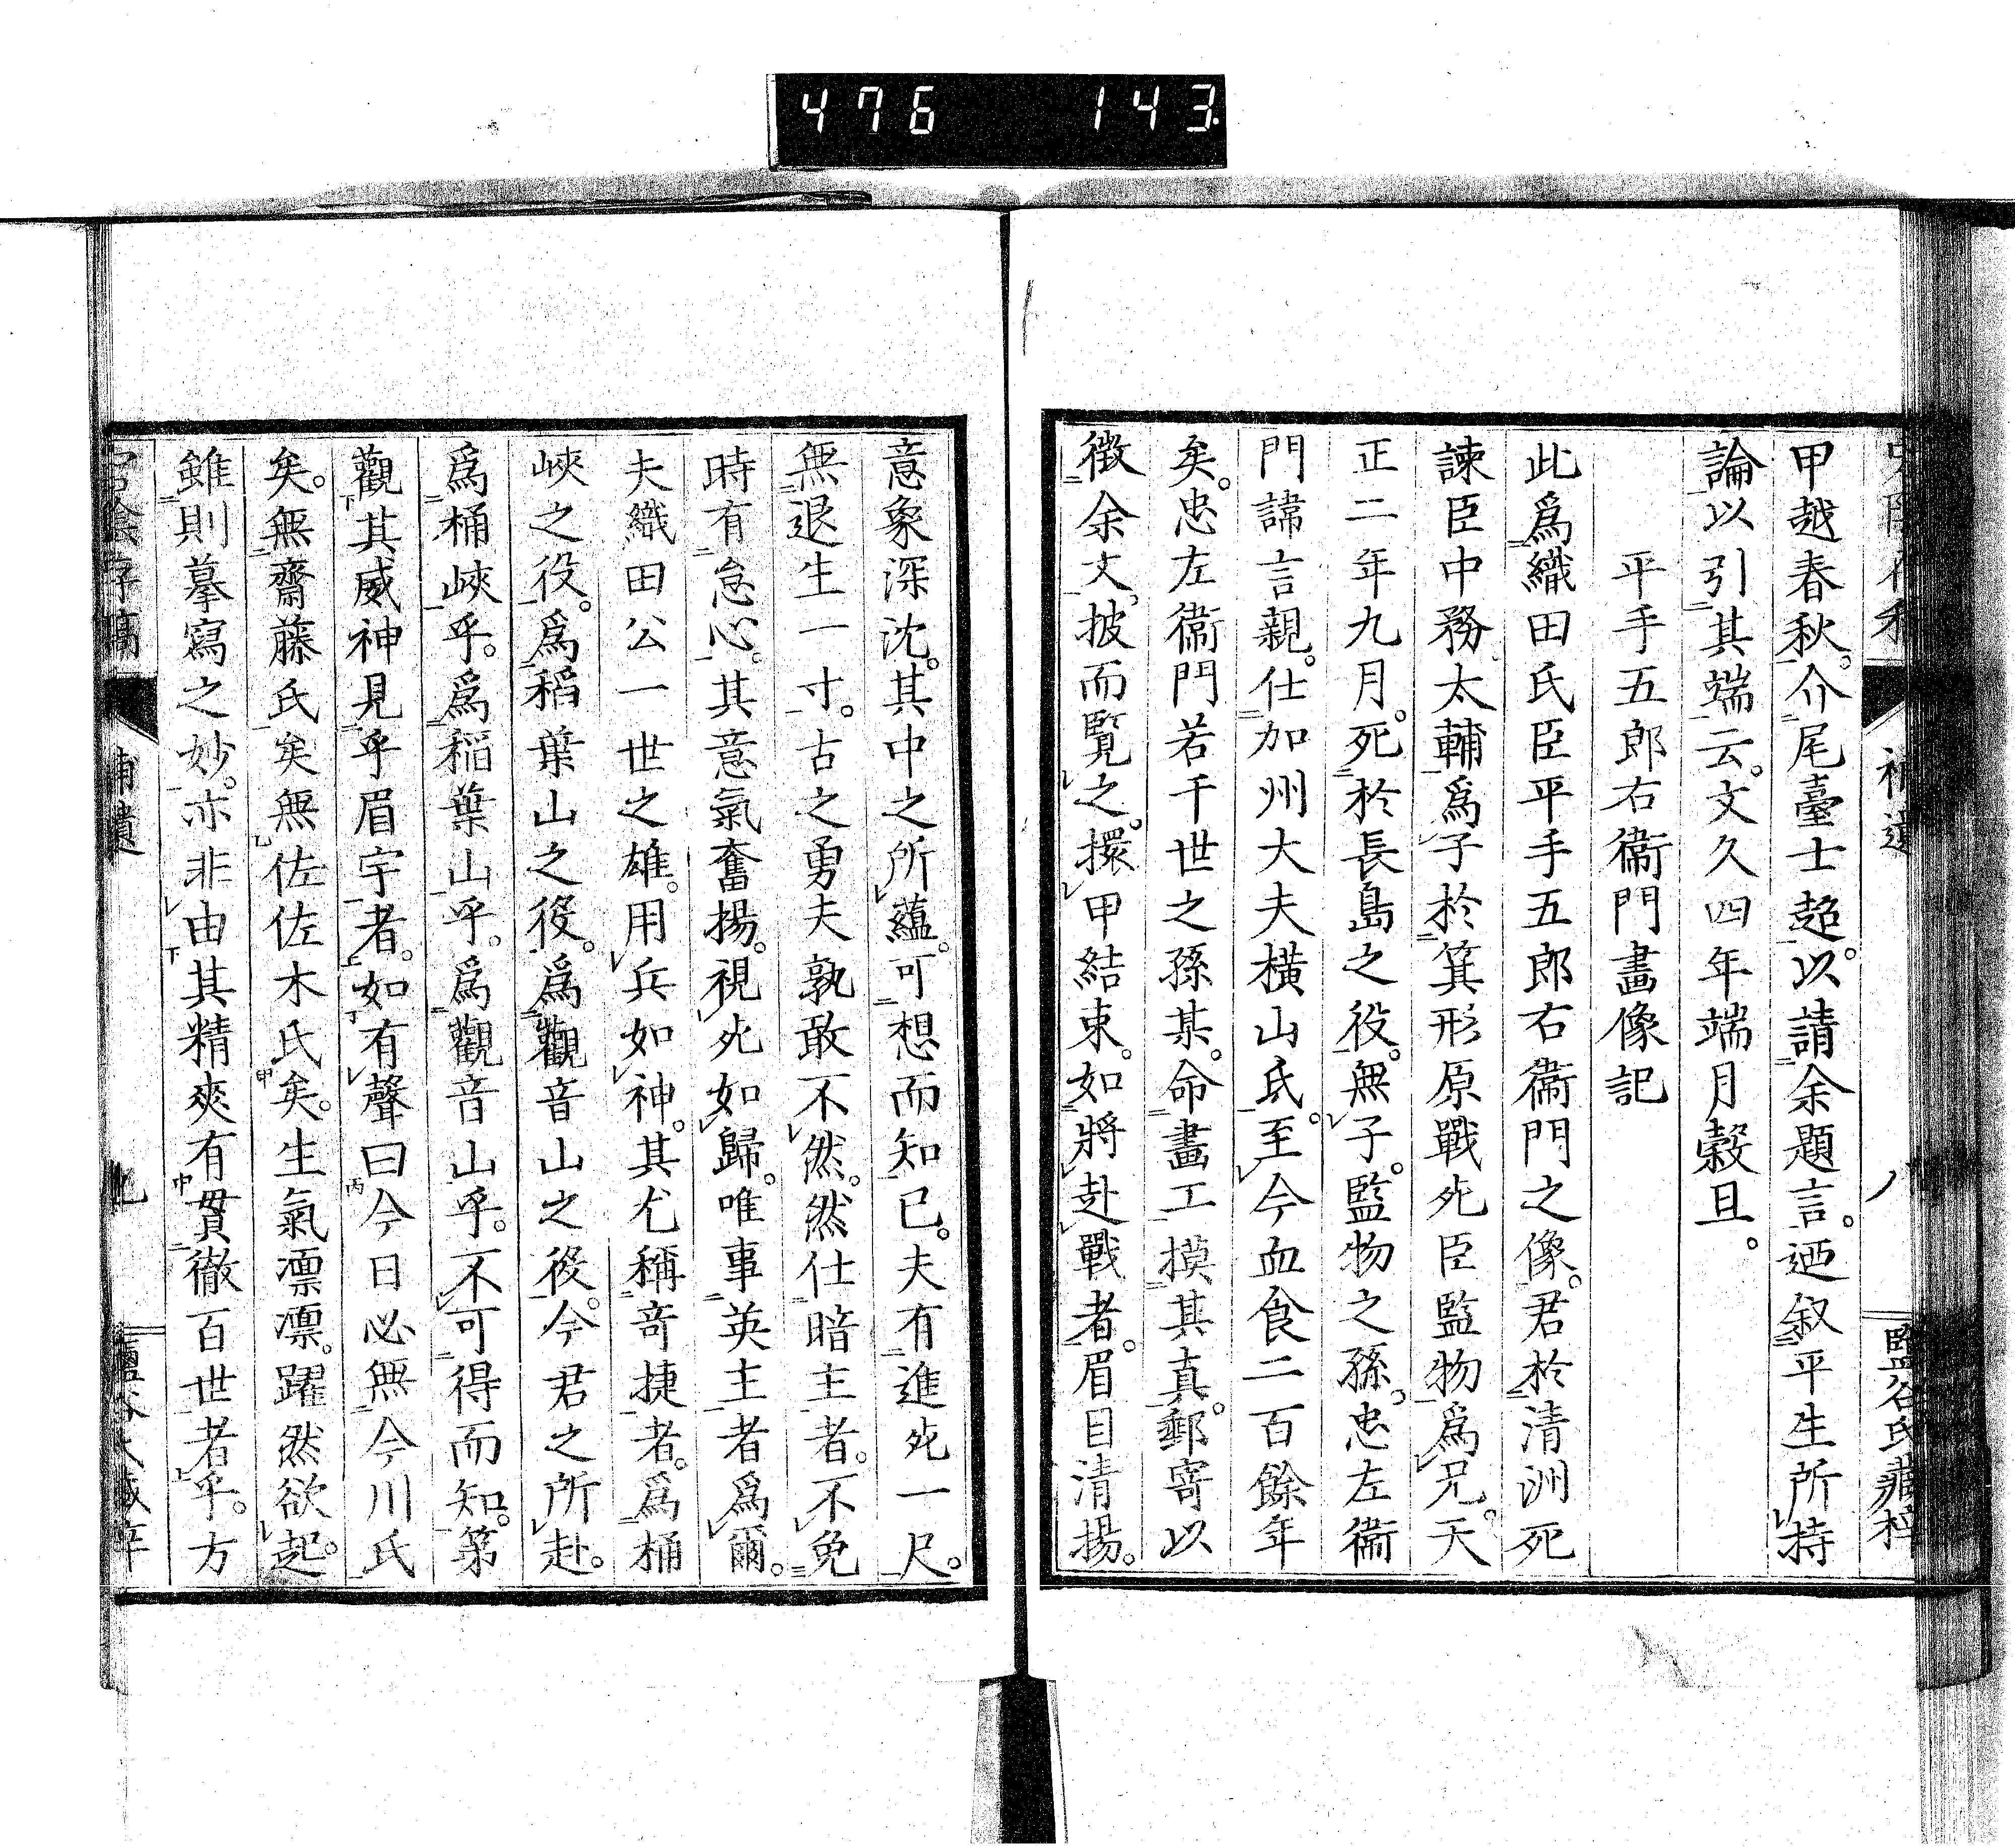 476 143
補遺 八 鹽谷氏藏梓
甲越春秋。介尾臺士超。以請余題言。迺叙平生所持
論以引其端云。文久四年端月穀旦。
平手五郎右衞門畫像記
此爲織田氏臣平手五郎右衞門之像。君於清洲死
諫臣中務太輔爲子於箕形原戰死臣監物爲兄。天
正二年九月。死於長島之役。無子。監物之孫。忠左衞
門諱言親。仕加州大夫橫山氏。至今血食二百餘年
矣。忠左衞門若干世之孫某。命畫工摸其真。郵寄以
徵余文。披而覽之。擐甲結束。如將赴戰者。眉目清揚。
意象深沈。其中之所蘊。可想而知已。夫有進死一尺。
無退生一寸。古之勇夫孰敢不然。然仕暗主者。不免
時有怠心。其意氣奮揚。視死如歸。唯事英主者爲爾。
夫織田公一世之雄。用兵如神。其尤稱奇捷者。爲桶
峽之役。爲稻葉山之役。爲觀音山之役。今君之所赴。
爲桶峽乎。爲稻葉山乎。爲觀音山乎。不可得而知。第
觀其威神見乎眉宇者。如有聲曰今日必無今川氏
矣。無齋藤氏矣無佐佐木氏矣。生氣凛凛。躍然欲起。
雖則摹寫之妙。亦非由其精爽有貫徹百世者乎。方
宕陰存稿 補遺 九